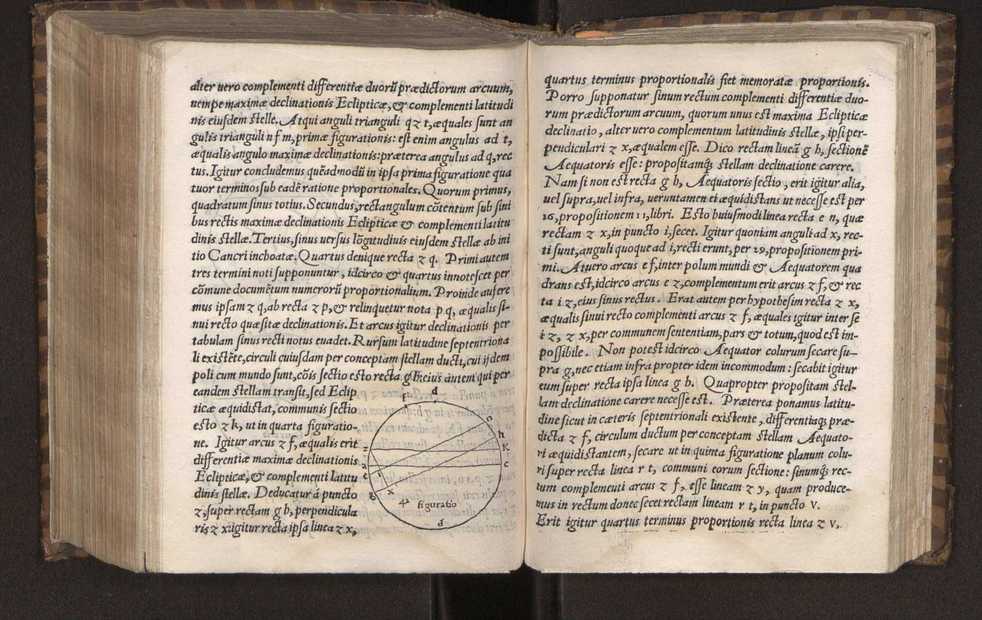 alter uero complementi differentiæ duorũ prædictorum arcuum,
nempe maximæ declinationis Eclipticæ, & complementi latitudi
nis eiusdem stelle. Atqui anguli trianguli q z t, æquales sunt an
gulis trianguli n f m, primæ figurationis: est enim angulus ad t,
æqualis angulo maximæ declinationis: præterea angulus ad q, rec
tus. Igitur concludemus quẽadmodũ in ipsa prima figuratione qua
tuor terminos sub eadẽ ratione proportionales. Quorum primus,
quadratum sinus totius. Secundus, rectangulum cõtentum sub sini
bus rectis maximæ declinationis Eclipticæ & complementi latitu
dinis stellæ. Tertius, sinus uersus lõgitudinis eiusdem stellæ ab ini
tio Cancri inchoatæ. Quartus denique recta z q. Primi autem
tres termini noti supponuntur, idcirco & quartus innotescet per
cõmune documẽtum numerorũ proportionalium. Proinde aufere
mus ipsam z q, ab recta z p, & relinquetur nota p q, æqualis si-
nui recto quæsitæ declinationis. Et arcus igitur declinationis per
tabulam sinus recti notus euadet. Rursum latitudine septentriona
li existẽte, circuli cuiusdam per conceptam stellam ducti, cui ijdem
poli cum mundo sunt, cõis sectio esto recta g h: eius autem qui per
eandem stellam transit, sed Eclip
ticæ æquidistat, communis sectio
esto z k, ut in quarta figuratio-
ne. Igitur arcus z f, æqualis erit
differentiæ maximæ declinationis
Eclipticæ, & complementi latitu
dinis stellæ. Deducatur à puncto
z, super rectam g h, perpendicula
ris z x: igitur recta ipsa linea z x,
f d
e h
k
z c
g x
4
figuratio
d
quartus terminus proportionalis fiet memoratæ proportionis.
Porro supponatur sinum rectum complementi differentiæ duo-
rum prædictorum arcuum, quorum unus est maxima Eclipticæ
declinatio, alter uero complementum latitudinis stellæ, ipsi per-
pendiculari z x, æqualem esse. Dico rectam lineã g h, sectionẽ
Aequatoris esse: propositamq́; stellam declinatione carere.
Nam si non est recta g h, Aequatoris sectio, erit igitur alia,
uel supra, uel infra, ueruntamen ei æquidistans ut necesse est per
16, propositionem 11, libri. Esto huiusmodi linea recta e n, quæ
rectam z x, in puncto i, secet. Igitur quoniam anguli ad x, rec-
ti sunt, anguli quoque ad i, recti erunt, per 29, propositionem pri-
mi. At uero arcus e f, inter polum mundi & Aequatorem qua
drans est, idcirco arcus e z, complementum erit arcus z f, & rec
ta i z, eius sinus rectus. Erat autem per hypothesim recta z x,
æqualis sinui recto complementi arcus z f, æquales igitur inter se
i z, z x, per communem sententiam, pars & totum, quod est im-
possibile. Non potest idcirco Aequator colurum secare su-
pra g, nec etiam infra propter idem incommodum: secabit igitur
eum super recta ipsa linea g h. Quapropter propositam stel-
lam declinatione carere necesse est. Præterea ponamus latitu-
dine sicut in cæteris septentrionali existente, differentiaq́; præ-
dicta z f, circulum ductum per conceptam stellam Aequato-
ri æquidistantem, secare ut in quinta figuratione planum colu-
ri super recta linea r t, communi eorum sectione: sinumq́; rec-
tum complementi arcus z f, esse lineam z y, quam produce-
mus in rectum donec secet rectam lineam r t, in puncto v.
Erit igitur quartus terminus proportionis recta linea z v,